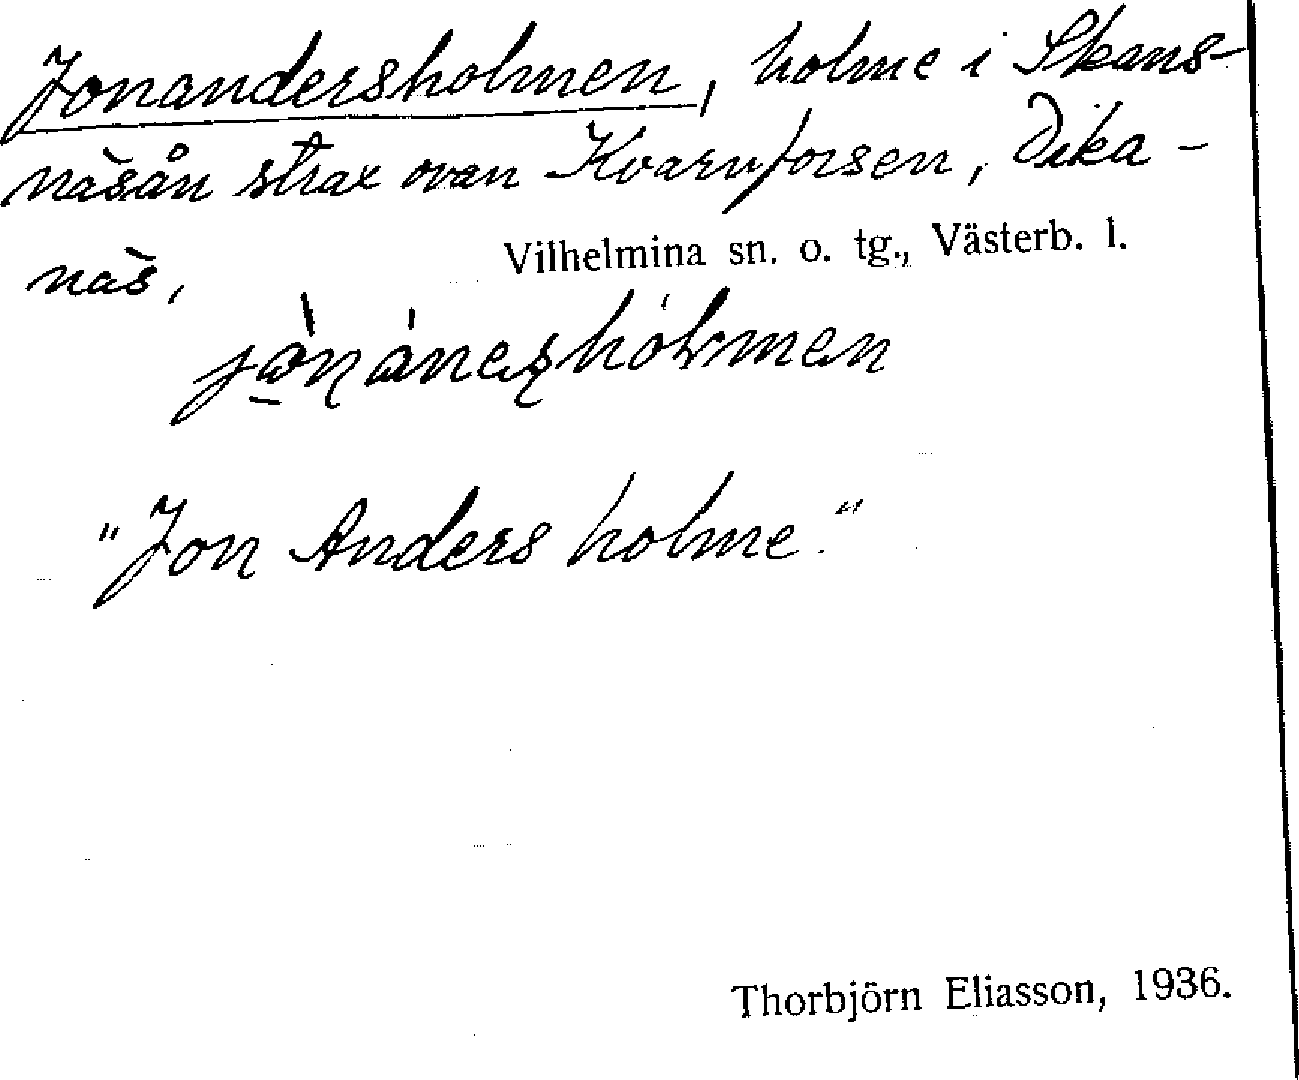 Jonandersholmen, holme i Skans-
näsån strax ovan Kvarnforsen, Dika-
näs,
Vilhelmina sn. o. tg., Västerb. l.
"Jon Anders holme."
Thorbjörn Eliasson, 1936.